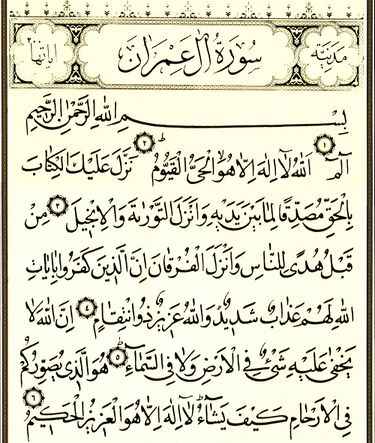 مدنية سورة آل عمران آياتها
بِسْمِ اللهِ الرَّحْمٰنِ الرَّحِيمِ
الٓمٓ ١ اَللهُ لَا اِلٰهَ اِلَّا هُوَ الْحَىُّ الْقَيُّومُ ٢ نَزَّلَ عَلَيْكَ الْكِتَابَ
بِالْحَقِّ مُصَدِّقًا لِمَا بَيْنَ يَدَيْهِ وَاَنْزَلَ التَّوْرٰيةَ وَالْاِنْجِيلَ ٣ مِنْ
قَبْلُ هُدًى لِلنَّاسِ وَاَنْزَلَ الْفُرْقَانَ اِنَّ الَّذِينَ كَفَرُوا بِاٰيَاتِ
اللهِ لَهُمْ عَذَابٌ شَدِيدٌ وَاللهُ عَزِيزٌ ذُو انْتِقَامٍ ٤ اِنَّ اللهَ لَا
يَخْفٰى عَلَيْهِ شَىْءٌ فِى الْاَرْضِ وَلَا فِى السَّمَاءِ ٥ هُوَ الَّذِى يُصَوِّرُكُمْ
فِى الْاَرْحَامِ كَيْفَ يَشَاءُ لَا اِلٰهَ اِلَّا هُوَ الْعَزِيزُ الْحَكِيمُ ٦